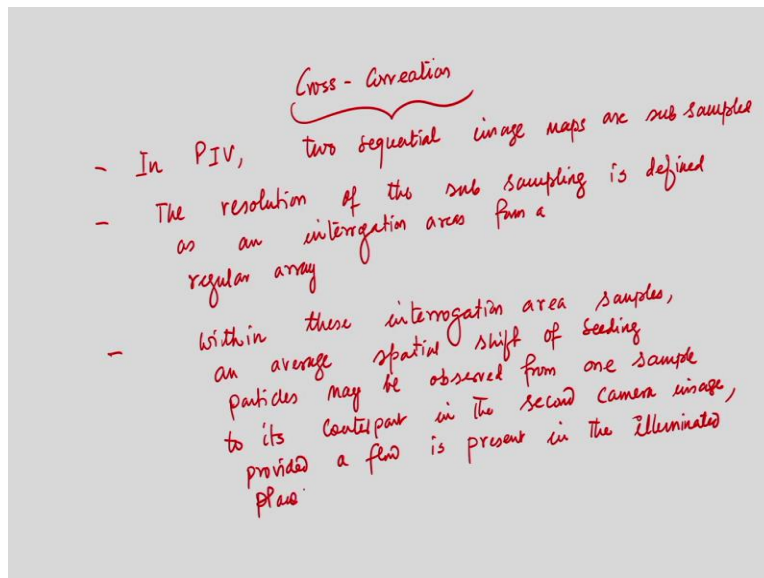 Cross-Correation
- In PIV, two sequential image maps are sub samples
- The resolution of the sub sampling is defined
as an interrgation areas from a
regular array
- within these interrogation area samples,
an average spatial shift of seeding
particles may be observed from one sample
to its counterpart in the second camera image,
provided a flow is present in the illuminated